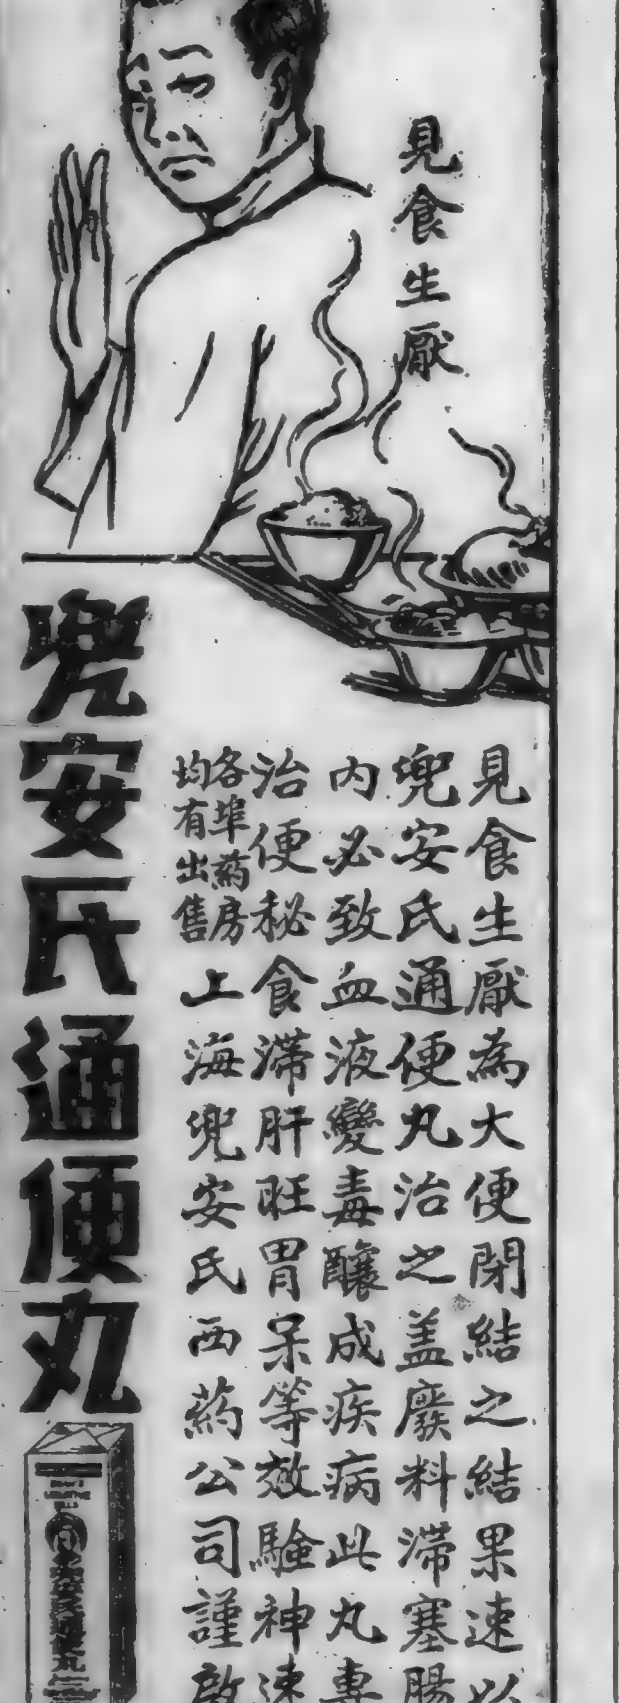 見食生厭
見食生厭為大便閉結之結果速以
兜安氏通便丸治之蓋廢料滯塞腸
內必致血液變毒釀成疾病此丸專
治便秘食滯肝旺胃呆等效驗神速
各埠葯房
均有出售
上海兜安氏西葯公司謹啟
兜安氏通便丸